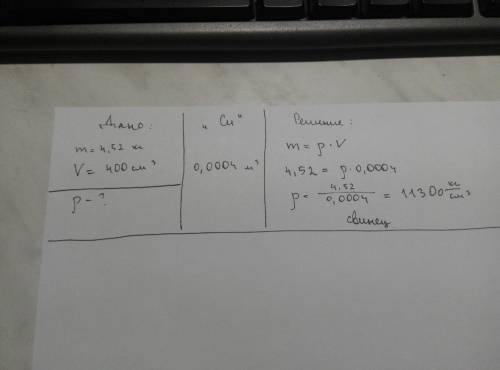 Дано:
m = 4,52 кг
V = 400 см³
ρ - ?
"Си"
0,0004 м³
Решение:
m = ρ · V
4,52 = ρ · 0,0004
ρ = 4,52 / 0,0004 = 11300 кг/см³
свинец